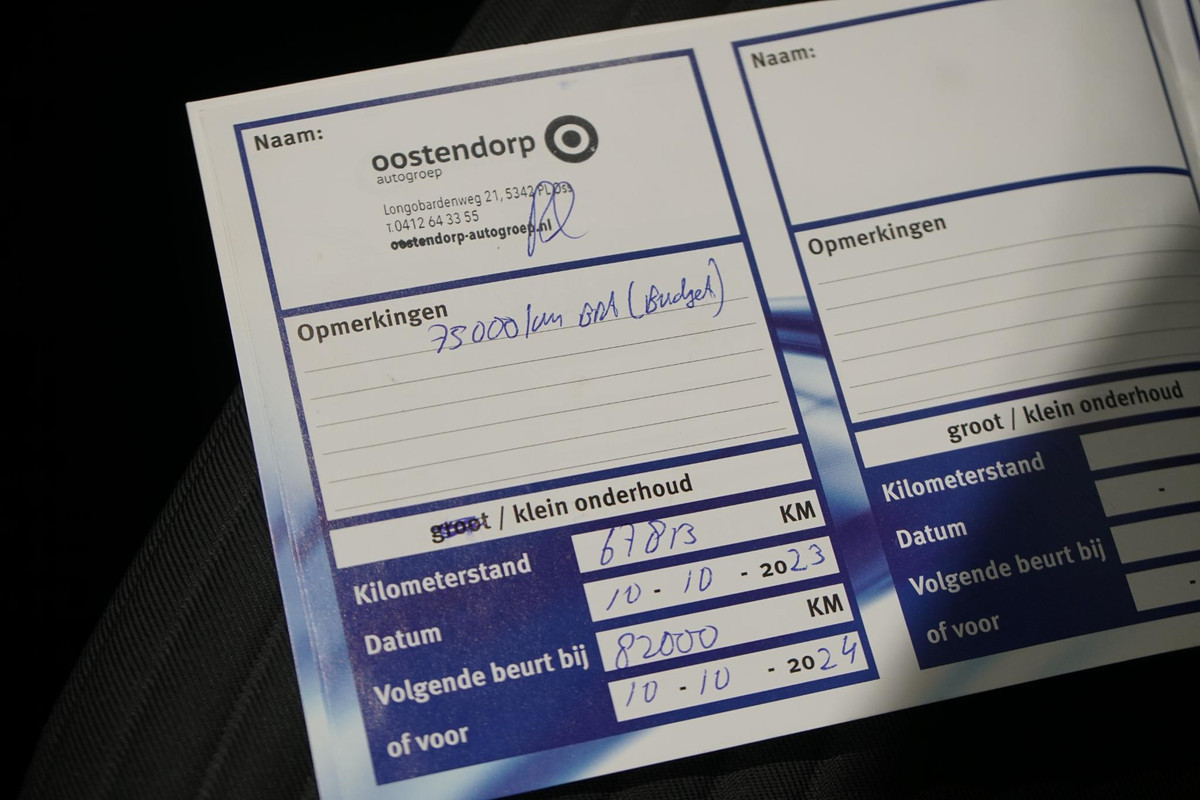 Naam:
oostendorp
autogroep
Longobardenweg 21, 5342 PL Oss
T.0412 64 33 55
oostendorp-autogroep.nl
Opmerkingen
75000/km (Budget)
groot / klein onderhoud
Kilometerstand 67813 KM
Datum 10 - 10 - 2023
Volgende beurt bij 82000 KM
of voor 10 - 10 - 2024
Naam:
Opmerkingen
groot / klein onderhoud
Kilometerstand
Datum -
Volgende beurt bij
of voor -